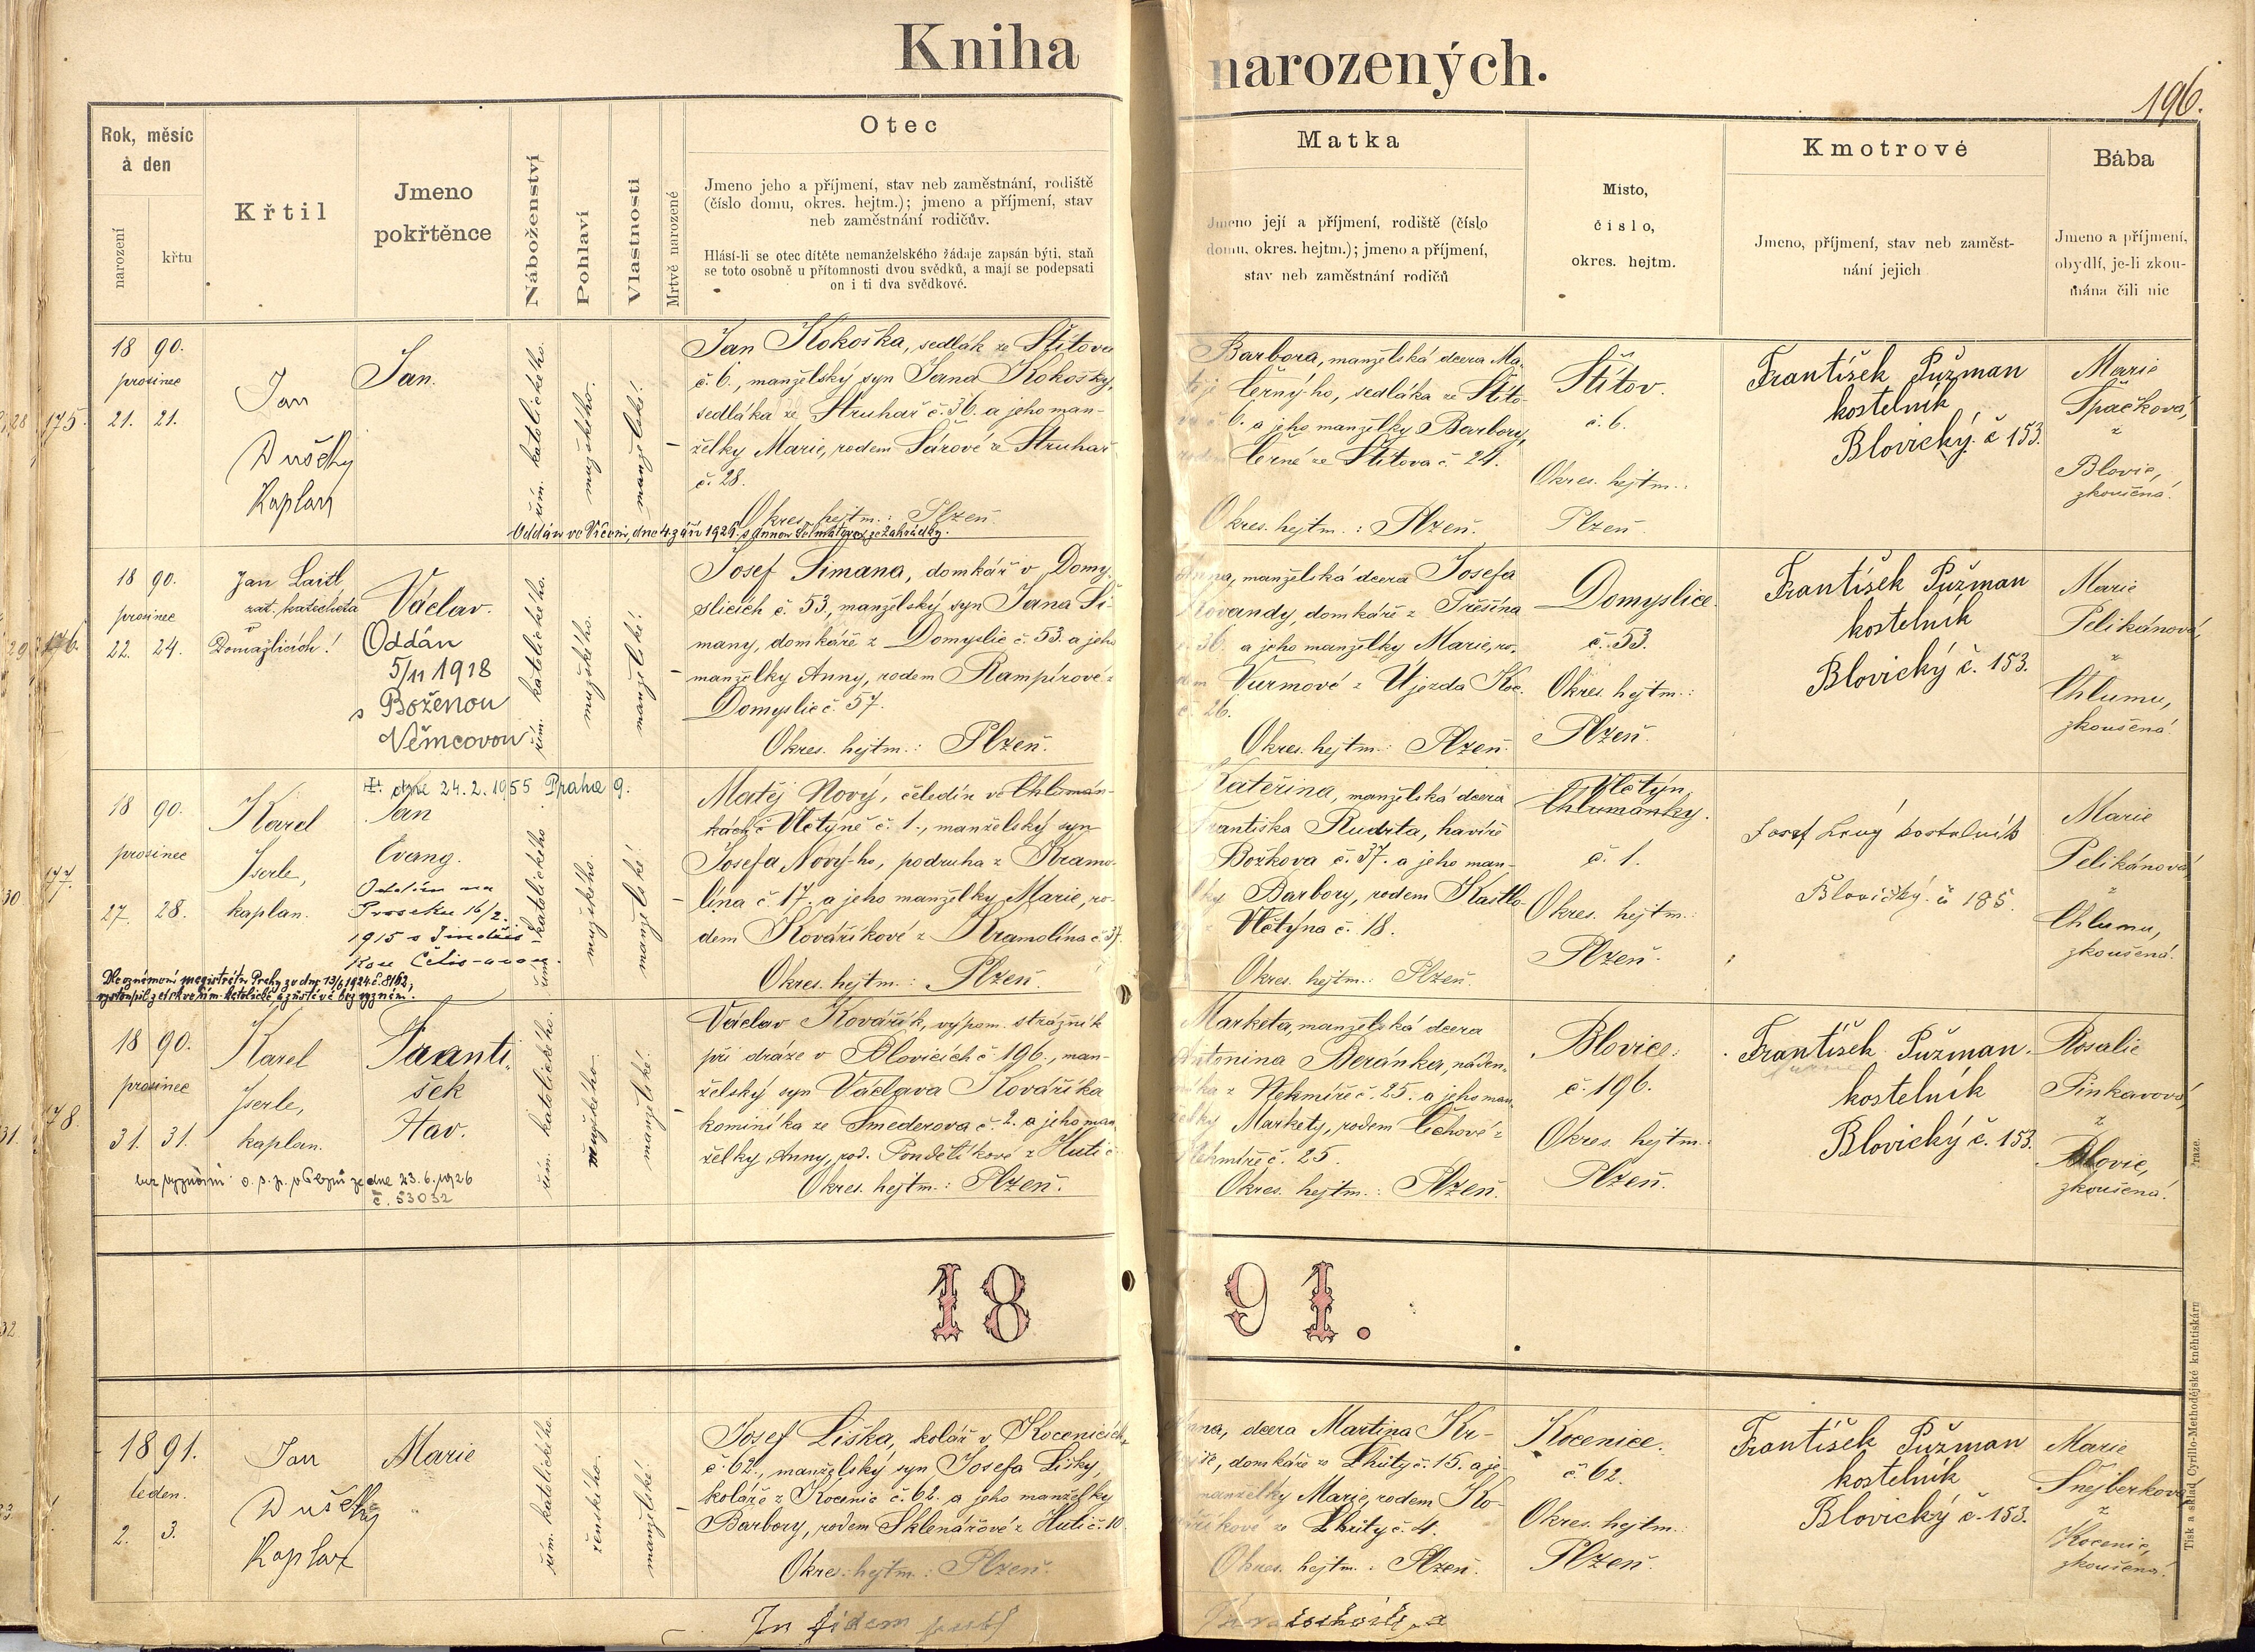 Kniha narozených.
196.
Rok, měsíc
a den
narození
křtu
Křtil
Jmeno
pokřtěnce
Náboženství
Pohlaví
Vlastnosti
Mrtvě narozené
Otec
Jmeno jeho a příjmení, stav neb zaměstnání, rodiště
(číslo domu, okres. hejtm.); jmeno a příjmení, stav
neb zaměstnání rodičův.
Hlásí-li se otec dítěte nemanželského žádaje zapsán býti, staň
se toto osobně u přítomnosti dvou svědků, a mají se podepsati
on i ti dva svědkové.
Matka
Jmeno její a příjmení, rodiště (číslo
domu, okres. hejtm.); jmeno a příjmení,
stav neb zaměstnání rodičů
Místo,
číslo,
okres. hejtm.
Kmotrové
Jmeno, příjmení, stav neb zaměst-
nání jejich
Bába
Jmeno a příjmení,
obydlí, je-li zkou-
mána čili nic
175.
18 90.
prosinec
21. 21.
Jan
Dušek
Kaplan
Jan.
řím. katolického.
mužského.
manželské!
–
Jan Kokoška, sedlák ze Štítova
č. 6., manželský syn Jana Kokošky,
sedláka ze Struhař č. 36. a jeho man-
želky Marie, rodem Šárové ze Struhař
č. 28.
Okres. hejtm.: Plzeň.
Barbora, manželská dcera Ma-
těj Černý-ho, sedláka ze Štíto-
va č. 6. a jeho manželky Barbory,
rodem Černé ze Štítova č. 24.
Okres. hejtm.: Plzeň.
Štítov.
č. 6.
Okres. hejtm.:
Plzeň
František Pužman
kostelník
Blovický č 153.
Marie
Špačková,
z
Blovic,
zkoušená!
176.
18 90.
prosinec
22. 24.
Jan Laitl
zat. katecheta
v
Domažlicích!
Václav.
Oddán
5/11 1918
s Boženou
Němcovou
řím. katolického.
mužského.
manželské!
–
Josef Šimana, domkář v Domy-
slicích č. 53, manželský syn Jana Ši-
many, domkáře z Domyslic č. 53. a jeho
manželky Anny, rodem Rampírové z
Domyslic č. 57.
Okres. hejtm.: Plzeň.
Anna, manželská dcera Josefa
Kovandy, domkáře z Třešína
č. 36. a jeho manželky Marie, ro-
dem Vurmové z Újezda Koc.
č. 26.
Okres. hejtm.: Plzeň.
Domyslice.
č. 53.
Okres. hejtm.:
Plzeň.
František Pužman
kostelník
Blovický č. 153.
Marie
Pelikánová,
z
Chlumu,
zkoušená!
177.
18 90.
prosinec
27. 28.
Karel
Jserle,
kaplan.
dne 24.2.1955 Praha 9.
Jan
Evang.
Oddán na
Proseku 16/2.
1915 s
řím. katolického
mužského.
manželské!
–
Matěj Nový, čeledín ve Chlumán-
kách č Vstýně č. 1., manželský syn
Josefa Nový-ho, podruha z Kramo-
lína č 17. a jeho manželky Marie, ro-
dem Kovaříkové z Kramolína č 37.
Okres. hejtm.: Plzeň.
Kateřina, manželská dcera
Františka Rudrta, havíře
Božkova č. 37. a jeho man-
Barbory, rodem
č. 18.
Okres. hejtm.: Plzeň.
Chlumánky.
č. 1.
Okres. hejtm.:
Plzeň.
Josef kostelník
Blovický. č 185.
Marie
Pelikánová
z
Chlumu,
zkoušená!
178.
18 90.
prosinec
31. 31.
Karel
Jserle,
kaplan.
Franti-
šek
Stav.
dne 23.6.1926
č. 53032
řím. katolického.
mužského.
manželské!
–
Václav Kovářík, výpom. strážník
při dráze v Blovicích č 196., man-
želský syn Václava Kováříka
kominíka ze Smederova č. 2. a jeho man-
želky Anny, rod. Pondělíkové z Hutí č
Okres. hejtm.: Plzeň.
Marketa, manželská dcera
Antonina Beránka, náden-
níka z Nekmíře č. 25. a jeho man-
želky Markety, rodem Čechové z
Nekmíře č. 25.
Okres. hejtm.: Plzeň.
Blovice.
č. 196.
Okres. hejtm.:
Plzeň.
František Pužman.
kostelník
Blovický č. 153.
Rosalie
Pinkavová,
z
Blovic,
zkoušená!
18 91.
1.
1891.
leden.
2. 3.
Jan
Dušek
Kaplan
Marie
řím. katolického.
ženského.
manželské!
–
Josef Liška, kolář v Kocenicích
č. 62., manželský syn Josefa Lišky,
koláře z Kocenic č. 62. a jeho manželky
Barbory, rodem Sklenářové z Hutí č. 10
Okres. hejtm.: Plzeň.
Anna, dcera Martina
domkáře ze Lhůty č. 15. a je-
manželky Marie, rodem Ko-
ze Lhůty č. 4.
Okres. hejtm.: Plzeň.
Kocenice.
č. 62.
Okres. hejtm.:
Plzeň.
František Pužman
kostelník
Blovický č. 153.
Marie
Šnejberková
z
Kocenic,
zkoušená!
In fidem
Tisk a sklad Cyrillo-Methodějské kněhtiskárny